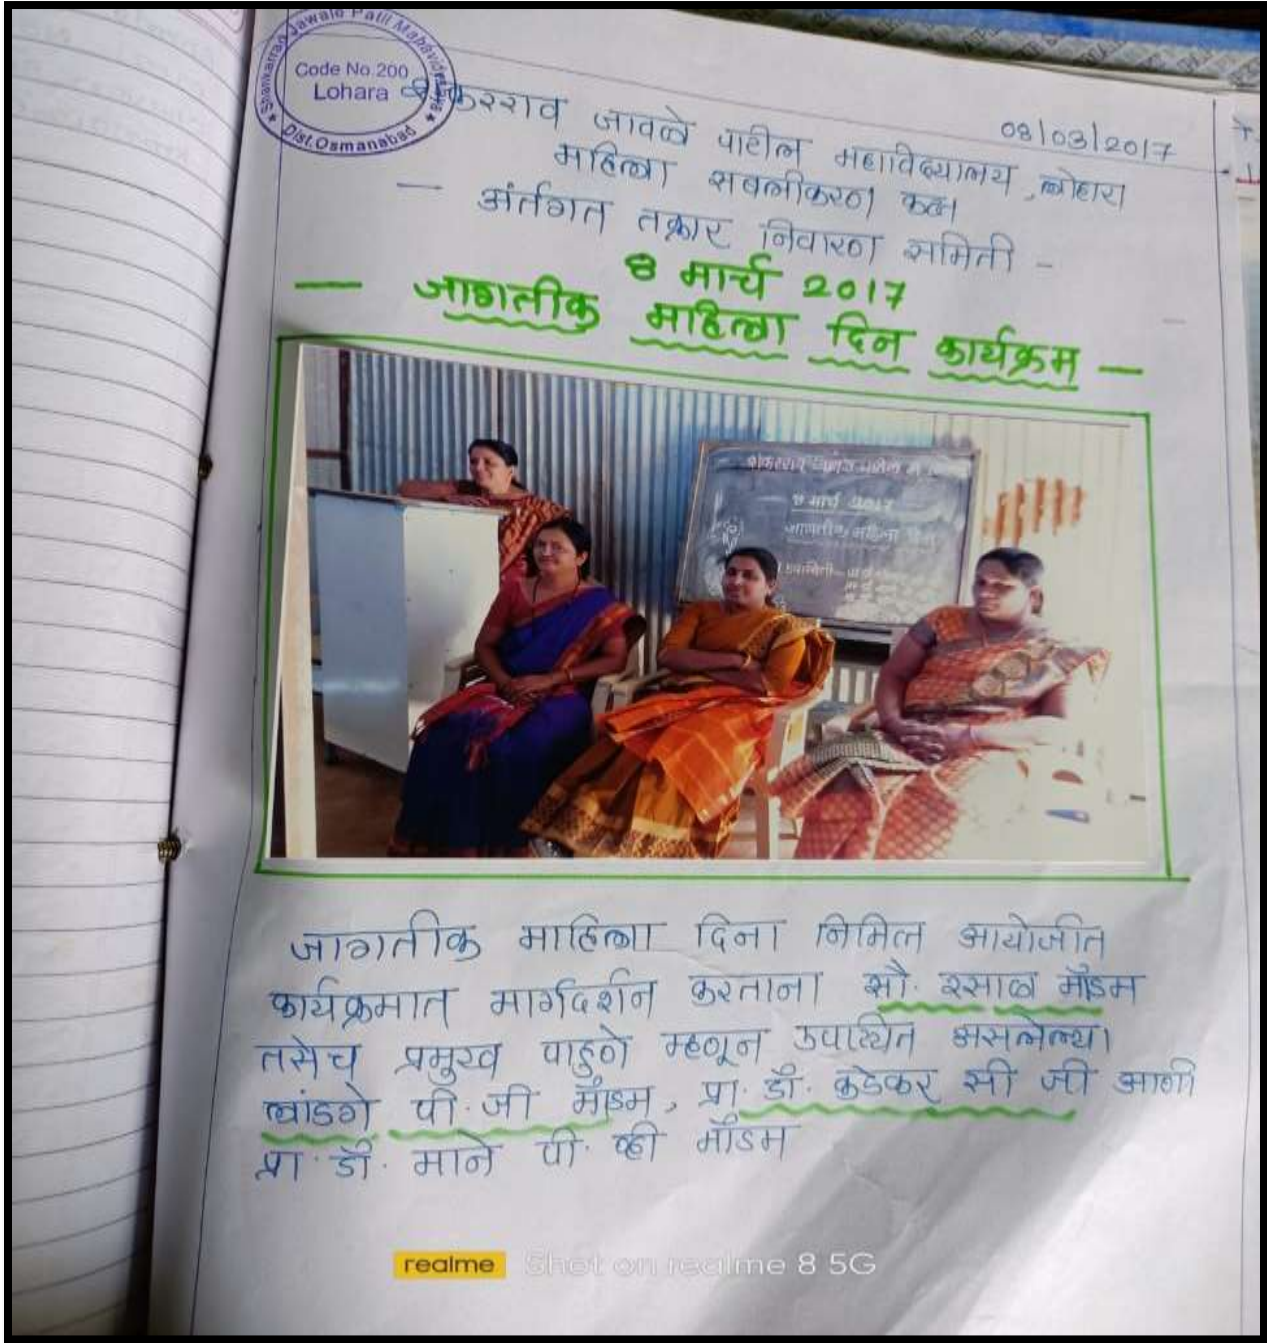 Shankarrao Jawale Patil Mahavidyalaya
Code No.200
Lohara
★ Dist.Osmanabad ★
08/03/2017
शंकरराव जावळे पाटील महाविद्यालय, लोहारा
महिला सबलीकरण कक्ष
— अंर्तगत तक्रार निवारण समिती –
8 मार्च 2017
— जागतीक महिला दिन कार्यक्रम —
८ मार्च 2017
जागतीक महिला दिन
जागतीक माहिला दिना निमित्त आयोजीत
कार्यक्रमात मार्गदर्शन करताना सौ. रसाळ मॅडम
तसेच प्रमुख पाहुणे म्हणून उपास्थित असलेल्या
लांडगे पी.जी मॅडम, प्रा. डॉ. कडेकर सी जी आणी
प्रा. डॉ. माने पी. व्ही मॅडम
realme Shot on realme 8 5G